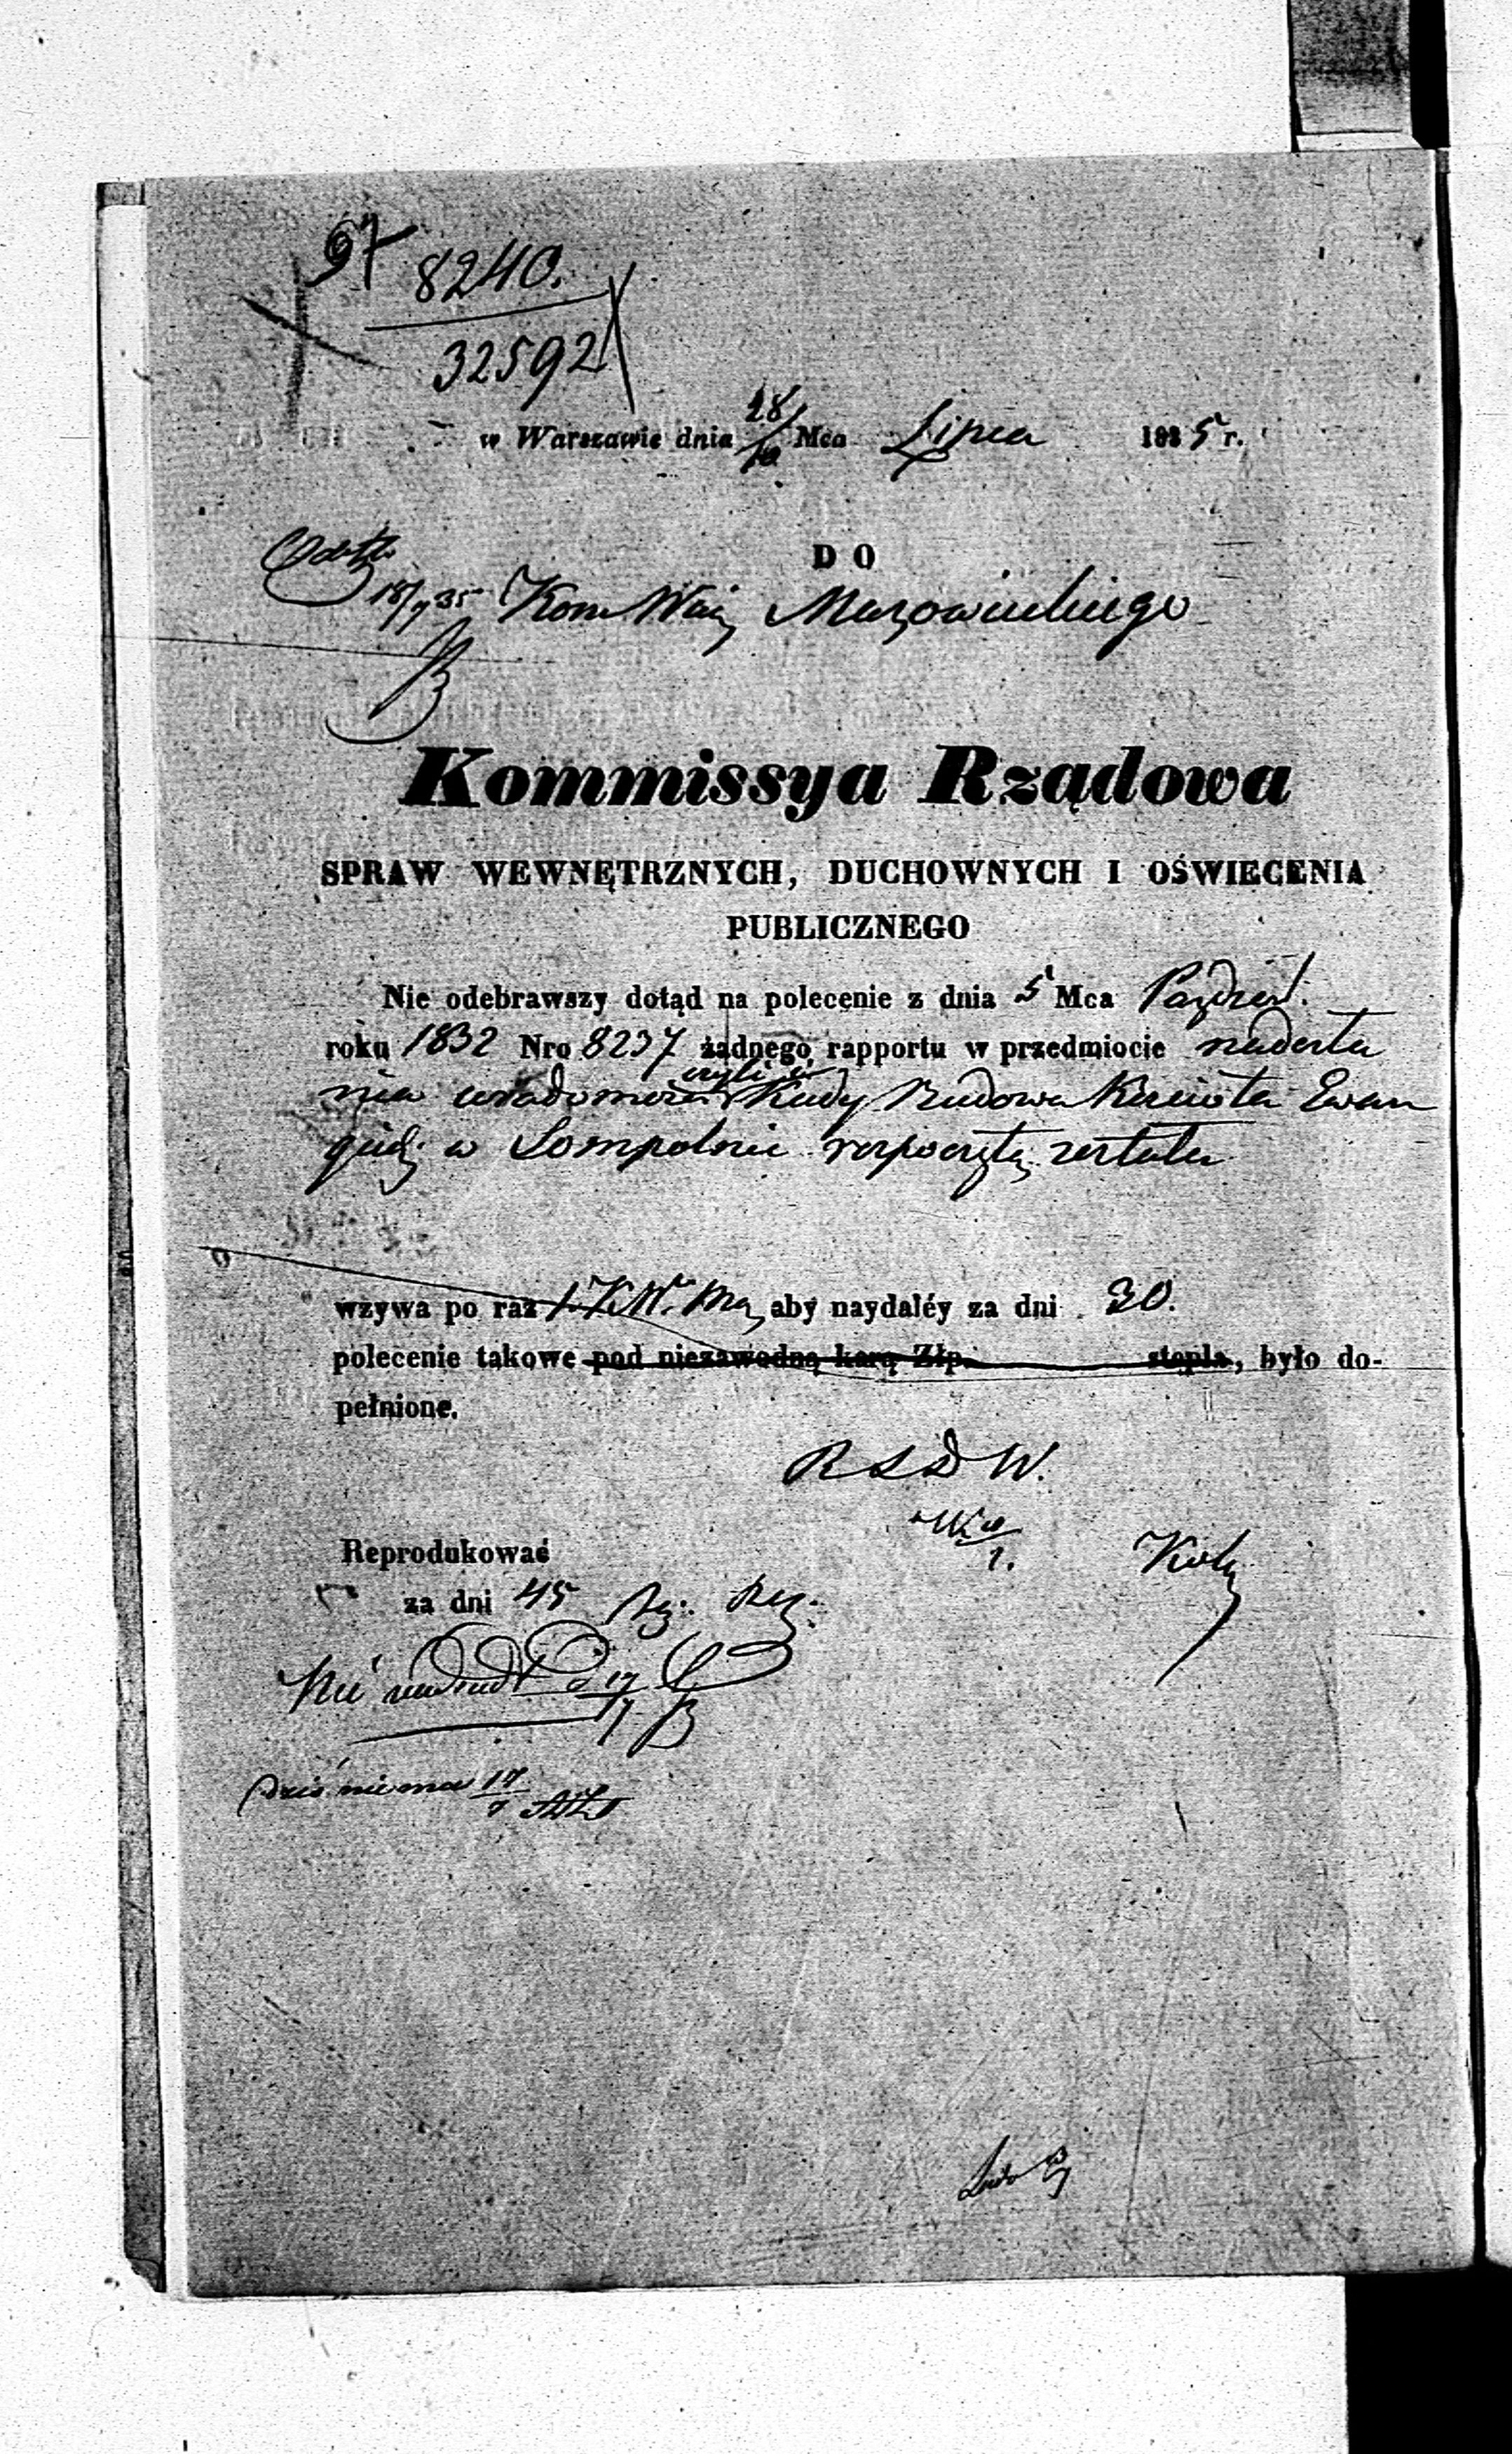 97
8240.
32592
w Warszawie dnia 28/10 Mca Lipca 1835 r.
DO
18/7 35 Kom Woj Mazowieckiego
Kommissya Rządowa
SPRAW WEWNĘTRZNYCH, DUCHOWNYCH I OŚWIECENIA
PUBLICZNEGO
Nie odebrawszy dotąd na polecenie z dnia 5 Mca Paździer.
roku 1832 Nro 8237 żadnego rapportu w przedmiocie nadesła
czyli i
nia wiadomości Kiedy Budowa Kościoła Ewan
gieli: w Sompolnie rozpoczętą została
wzywa po raz 1. K.W. Maz, aby naydaléy za dni 30.
polecenie takowe pod niezawodną karą Złp. stępla, było do-
pełnione.
R S D W.
Reprodukować
za dni 45
Nie nadszedł 17/7
Dziś niema 17/7